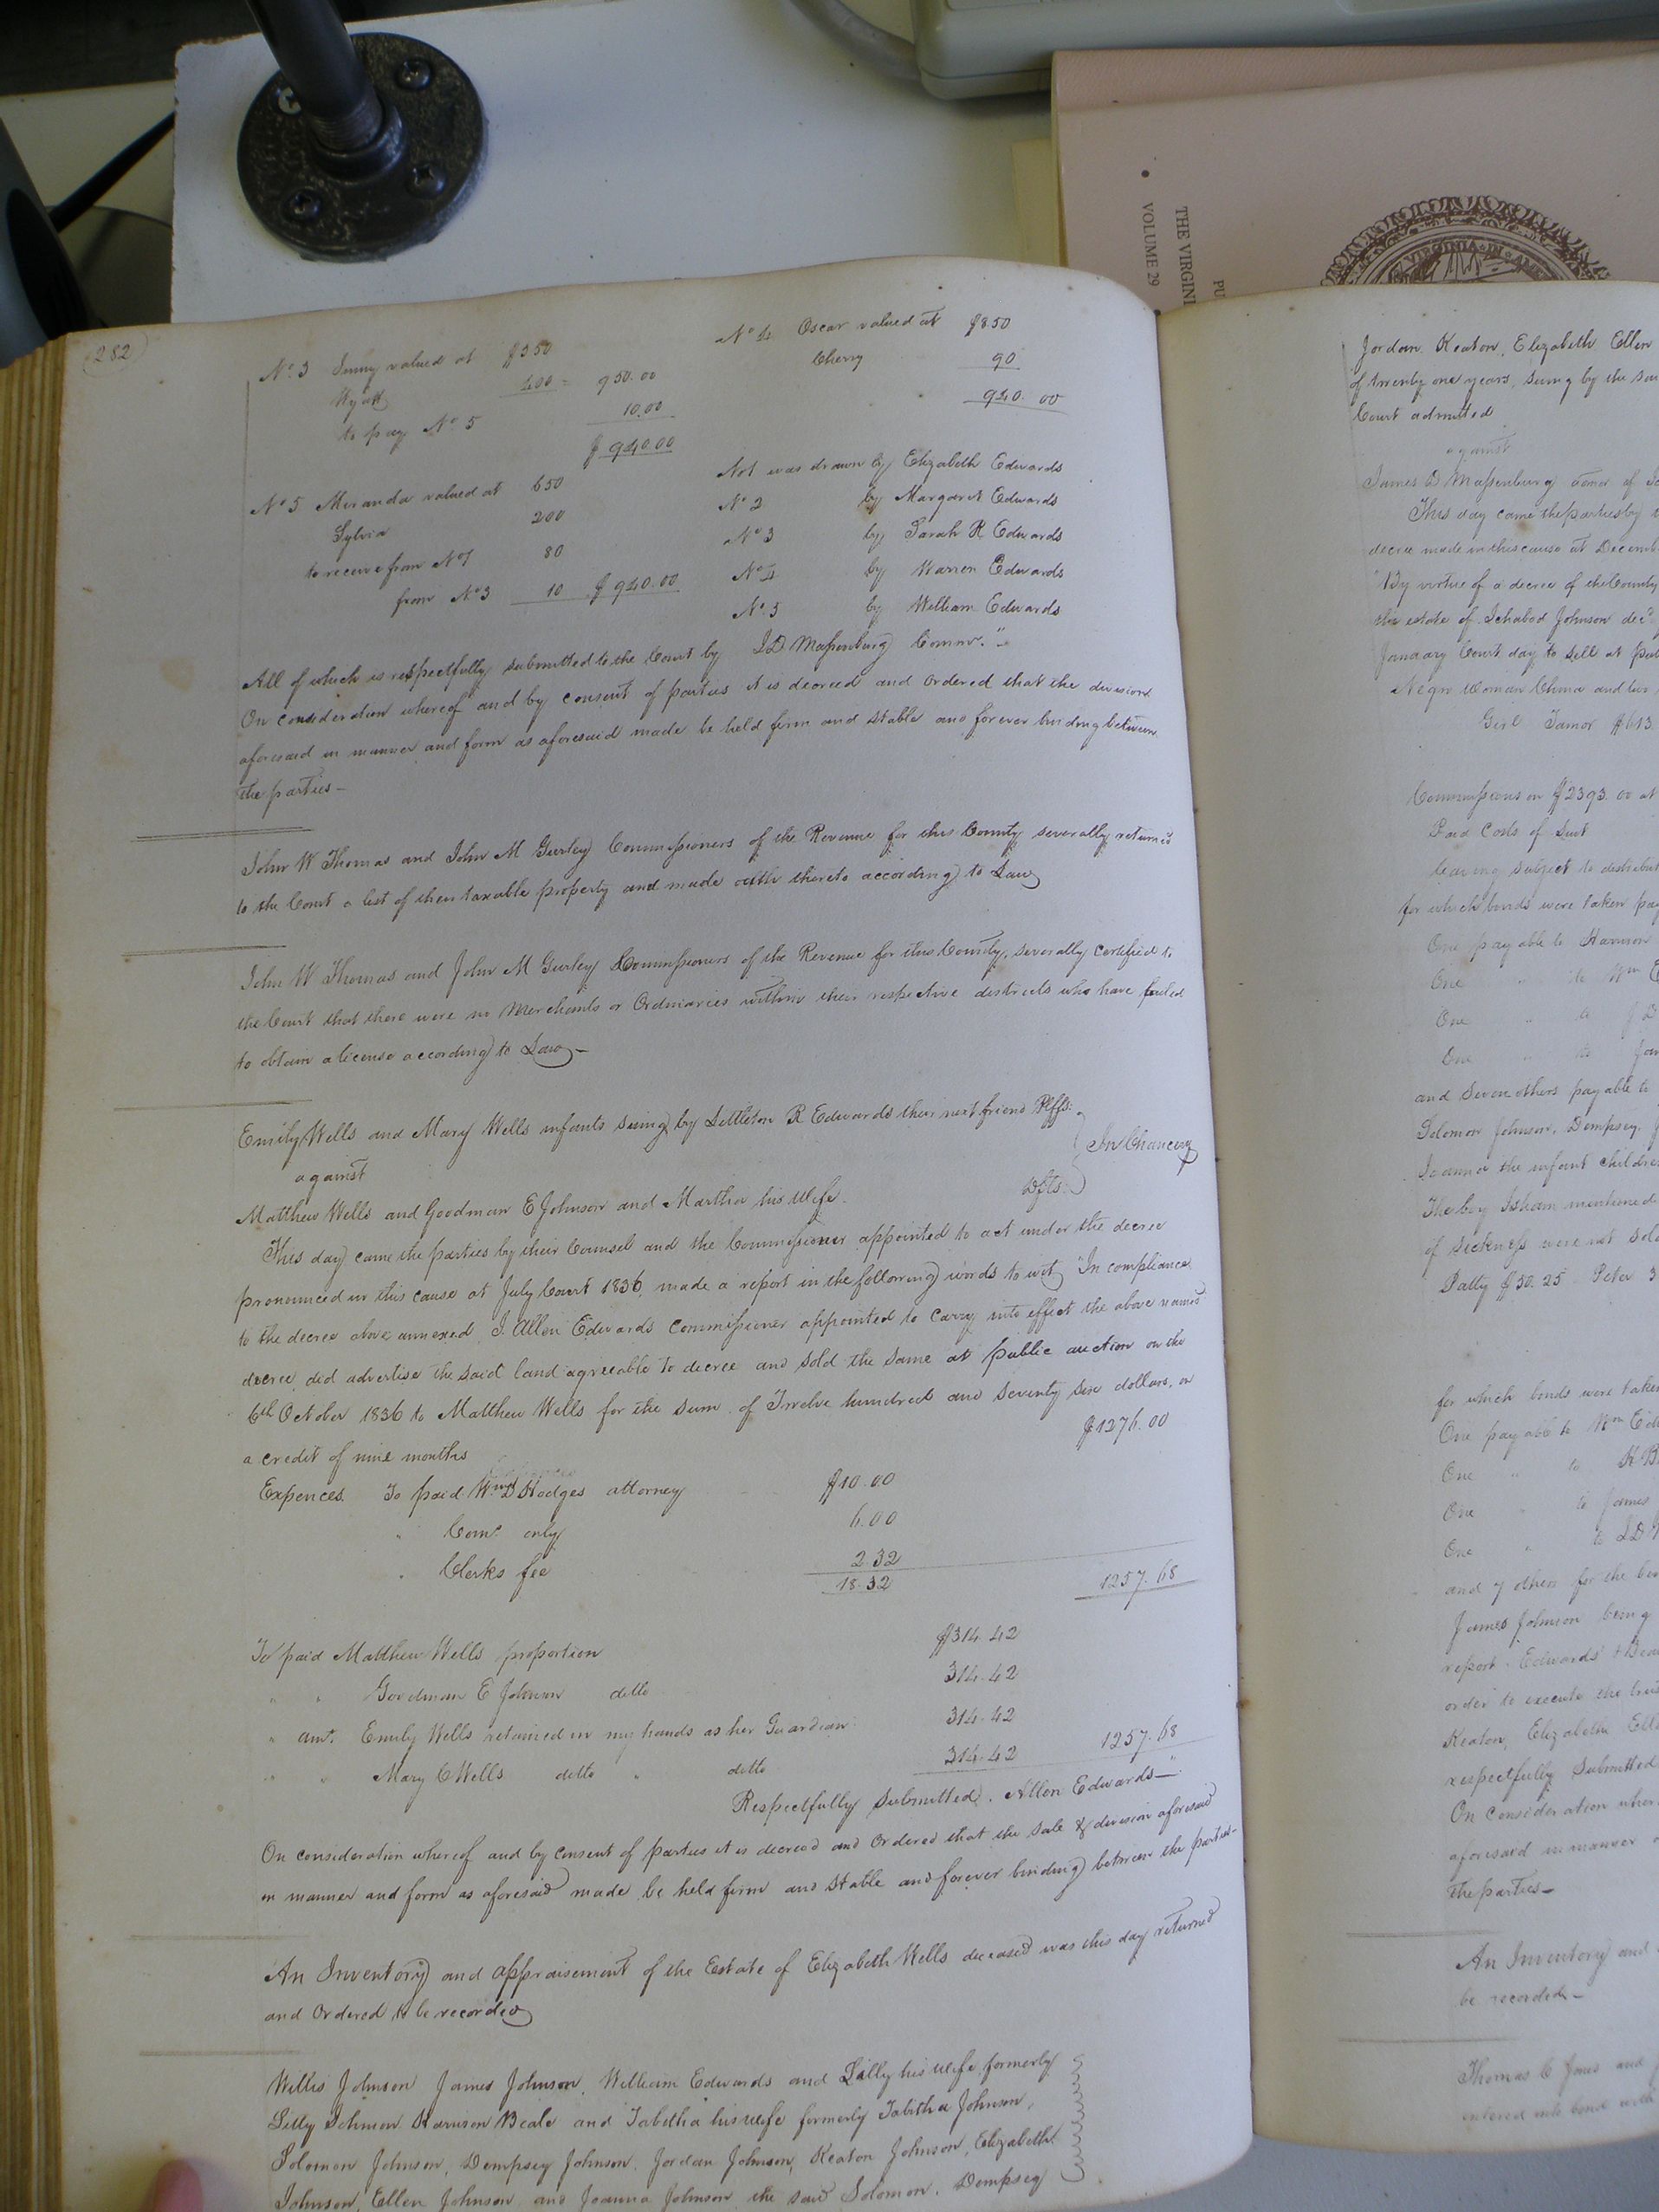 THE VIRGINI
VOLUME 29
PU
VIRGINIA IN AME
282
No. 3 Jinny valued at $550
Wyatt 400 = 950.00
to pay No 5 10.00
$940.00
No 4 Oscar valued at $850
Cherry 90
940.00
No 5 Miranda valued at 650
Sylvia 200
to receive from No 1 80
from No 3 10 $940.00
No 1 was drawn by Elizabeth Edwards
No 2 by Margaret Edwards
No 3 by Sarah R Edwards
No 4 by Warren Edwards
No. 5 by William Edwards
All of which is respectfully submitted to the Court by J D Massenburg Commr."
On consideration whereof and by consent of parties it is decreed and ordered that the division
aforesaid in manner and form as aforesaid made be held firm and stable and forever binding between
the parties—
John W Thomas and John M Gurley Commissioners of the Revenue for this County severally returned
to the Court a list of their taxable property and made oath thereto according to Law
John W Thomas and John M Gurley Commissioners of the Revenue for this County, severally certified to
the Court that there were no Merchants or Ordinaries within their respective districts who have failed
to obtain a license according to Law—
Emily Wells and Mary Wells infants suing by Littleton R Edwards their next friend Plffs.
against
In Chancery
Matthew Wells and Goodman E Johnson and Martha his wife Dfts.
This day came the parties by their Counsel and the Commissioner appointed to act under the decree
pronounced in this cause at July Court 1836, made a report in the following words to wit, "In compliance
to the decree above annexed, I Allen Edwards Commissioner appointed to carry into effect the above named
decree, did advertise the said land agreeable to decree and sold the same at public auction on the
6th October 1836 to Matthew Wells for the sum of Twelve hundred and seventy six dollars, on
a credit of nine months $1276.00
Expences To paid Wm D Hodges attorney $10.00
" Comr. only 6.00
" Clerks fee 2.32
18.32 1257.68
To paid Matthew Wells proportion $314.42
" " Goodman E Johnson ditto 314.42
" amt. Emily Wells retained in my hands as her Guardian 314.42
" " Mary C Wells ditto " ditto 314.42 1257.68
Respectfully Submitted. Allen Edwards—"
On consideration whereof and by consent of parties it is decreed and ordered that the sale & division aforesaid
in manner and form as aforesaid made be held firm and stable and forever binding between the parties—
An Inventory and appraisement of the Estate of Elizabeth Wells deceased was this day returned
and Ordered to be recorded
Willis Johnson James Johnson, William Edwards and Lilly his wife formerly
Lilly Johnson Harrison Beale and Tabitha his wife formerly Tabitha Johnson,
Solomon Johnson, Dempsey Johnson, Jordan Johnson, Keaton Johnson, Elizabeth
Johnson, Ellen Johnson and Joanna Johnson the said Solomon, Dempsey
Jordan, Keaton, Elizabeth Ellen
of twenty one years, suing by the sai
Court admitted
against
James D Massenburg
This day came the parties by
decree made in this cause at Decemb
"By virtue of a decree of the County
the estate of Ichabod Johnson decd
January Court day to sell at pub
Negro woman and two
Girl Tamor $613
Commissions on $2393.00 at
Paid Costs of Suit
leaving subject to distribut
for which bonds were taken pay
One payable to Harrison
One " to Wm E
One " to J D
One " to Jam
and seven others payable to
Solomon Johnson, Dempsey, J
Joanna the infant childre
The boy Isham mentioned
of sickness were not sold
Patty $30.25 Peter 3
for which bonds were taken
One payable to Wm Edw
One " to H B
One " to James
One " to J D M
and 7 others for the
James Johnson being
report. Edwards & Bea
order to execute the
Keaton, Elizabeth Elle
respectfully Submitted
On consideration wher
aforesaid in manner
the parties—
An Inventory and
be recorded—
Thomas C Jones and
entered into bond with